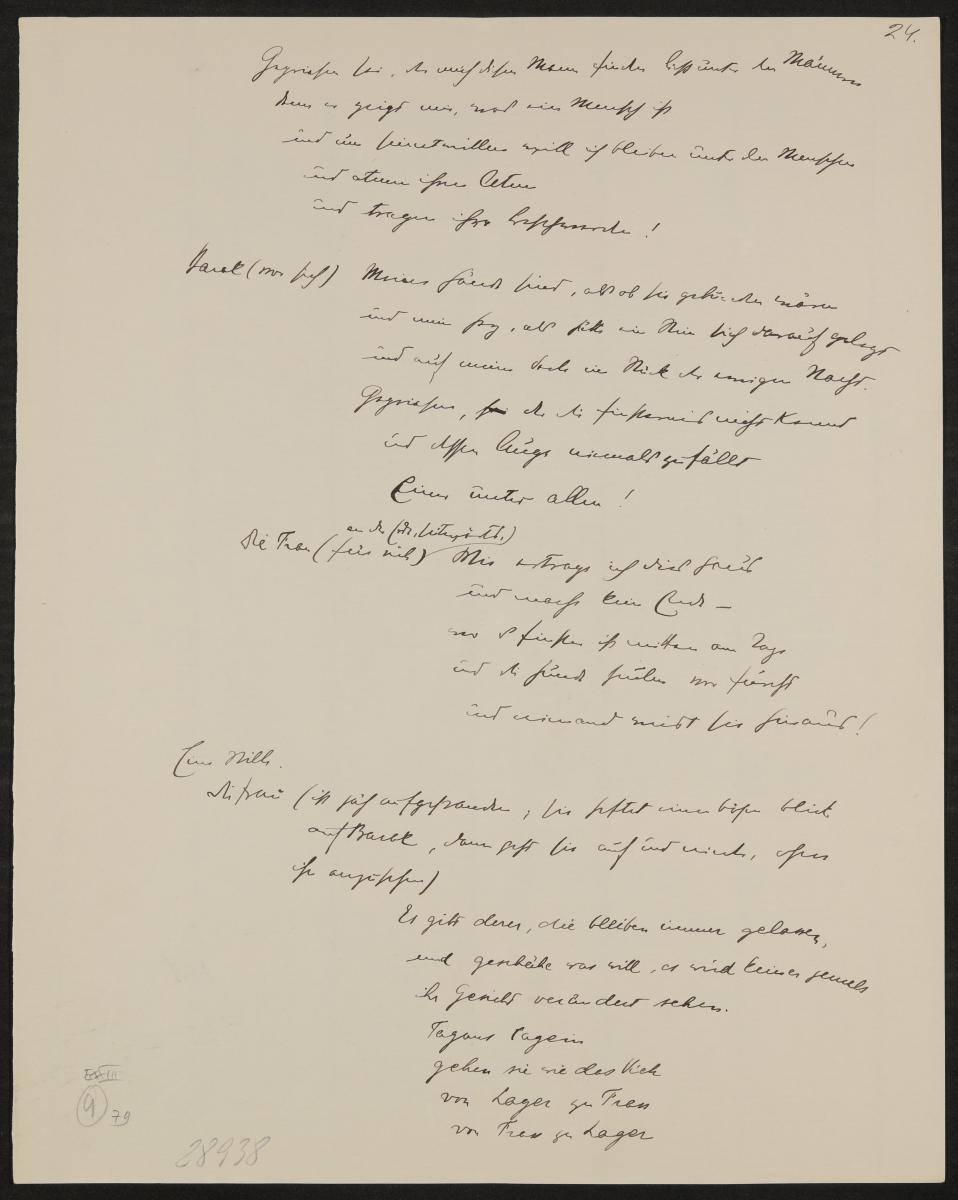 24.
Gepriesen sei, der mich diesen Mann finden liess unter den Männern
denn er zeigt mir, was ein Mensch ist
und um seinetwillen will ich bleiben unter den Menschen
und atmen ihren Atem
und tragen ihre Beschwerden!
Barak (vor sich) Meine Hände sind, als ob sie gebunden wären
und mein Herz, als hätte ein Stein sich darauf gelegt
und auf meiner Seele ein Stück der ewigen Nacht.
Gepriesen, der die Finsternis nicht kennt
und dessen Auge niemals zufällt
Einer unter allen!
an der Erde, seitwärts.)
Die Frau (für sich) Wie ertrage ich dies Haus
und mache kein Ende –
wo es finster ist mitten am Tage
und die Hunde heulen vor Furcht
und niemand weist sie hinaus!
Eine Stille.
Die Frau (ist jäh aufgestanden; sie heftet einen bösen Blick
auf Barak, dann geht sie auf und nieder, ohne
ihn anzusehen)
Es gibt derer, die bleiben immer gelassen,
und geschähe was will, es wird keiner jemals
ihr Gesicht verändert sehen.
Tagaus tagein
gehen sie wie das Vieh
von Lager zu Frass
von Frass zu Lager
III
9 79
28938